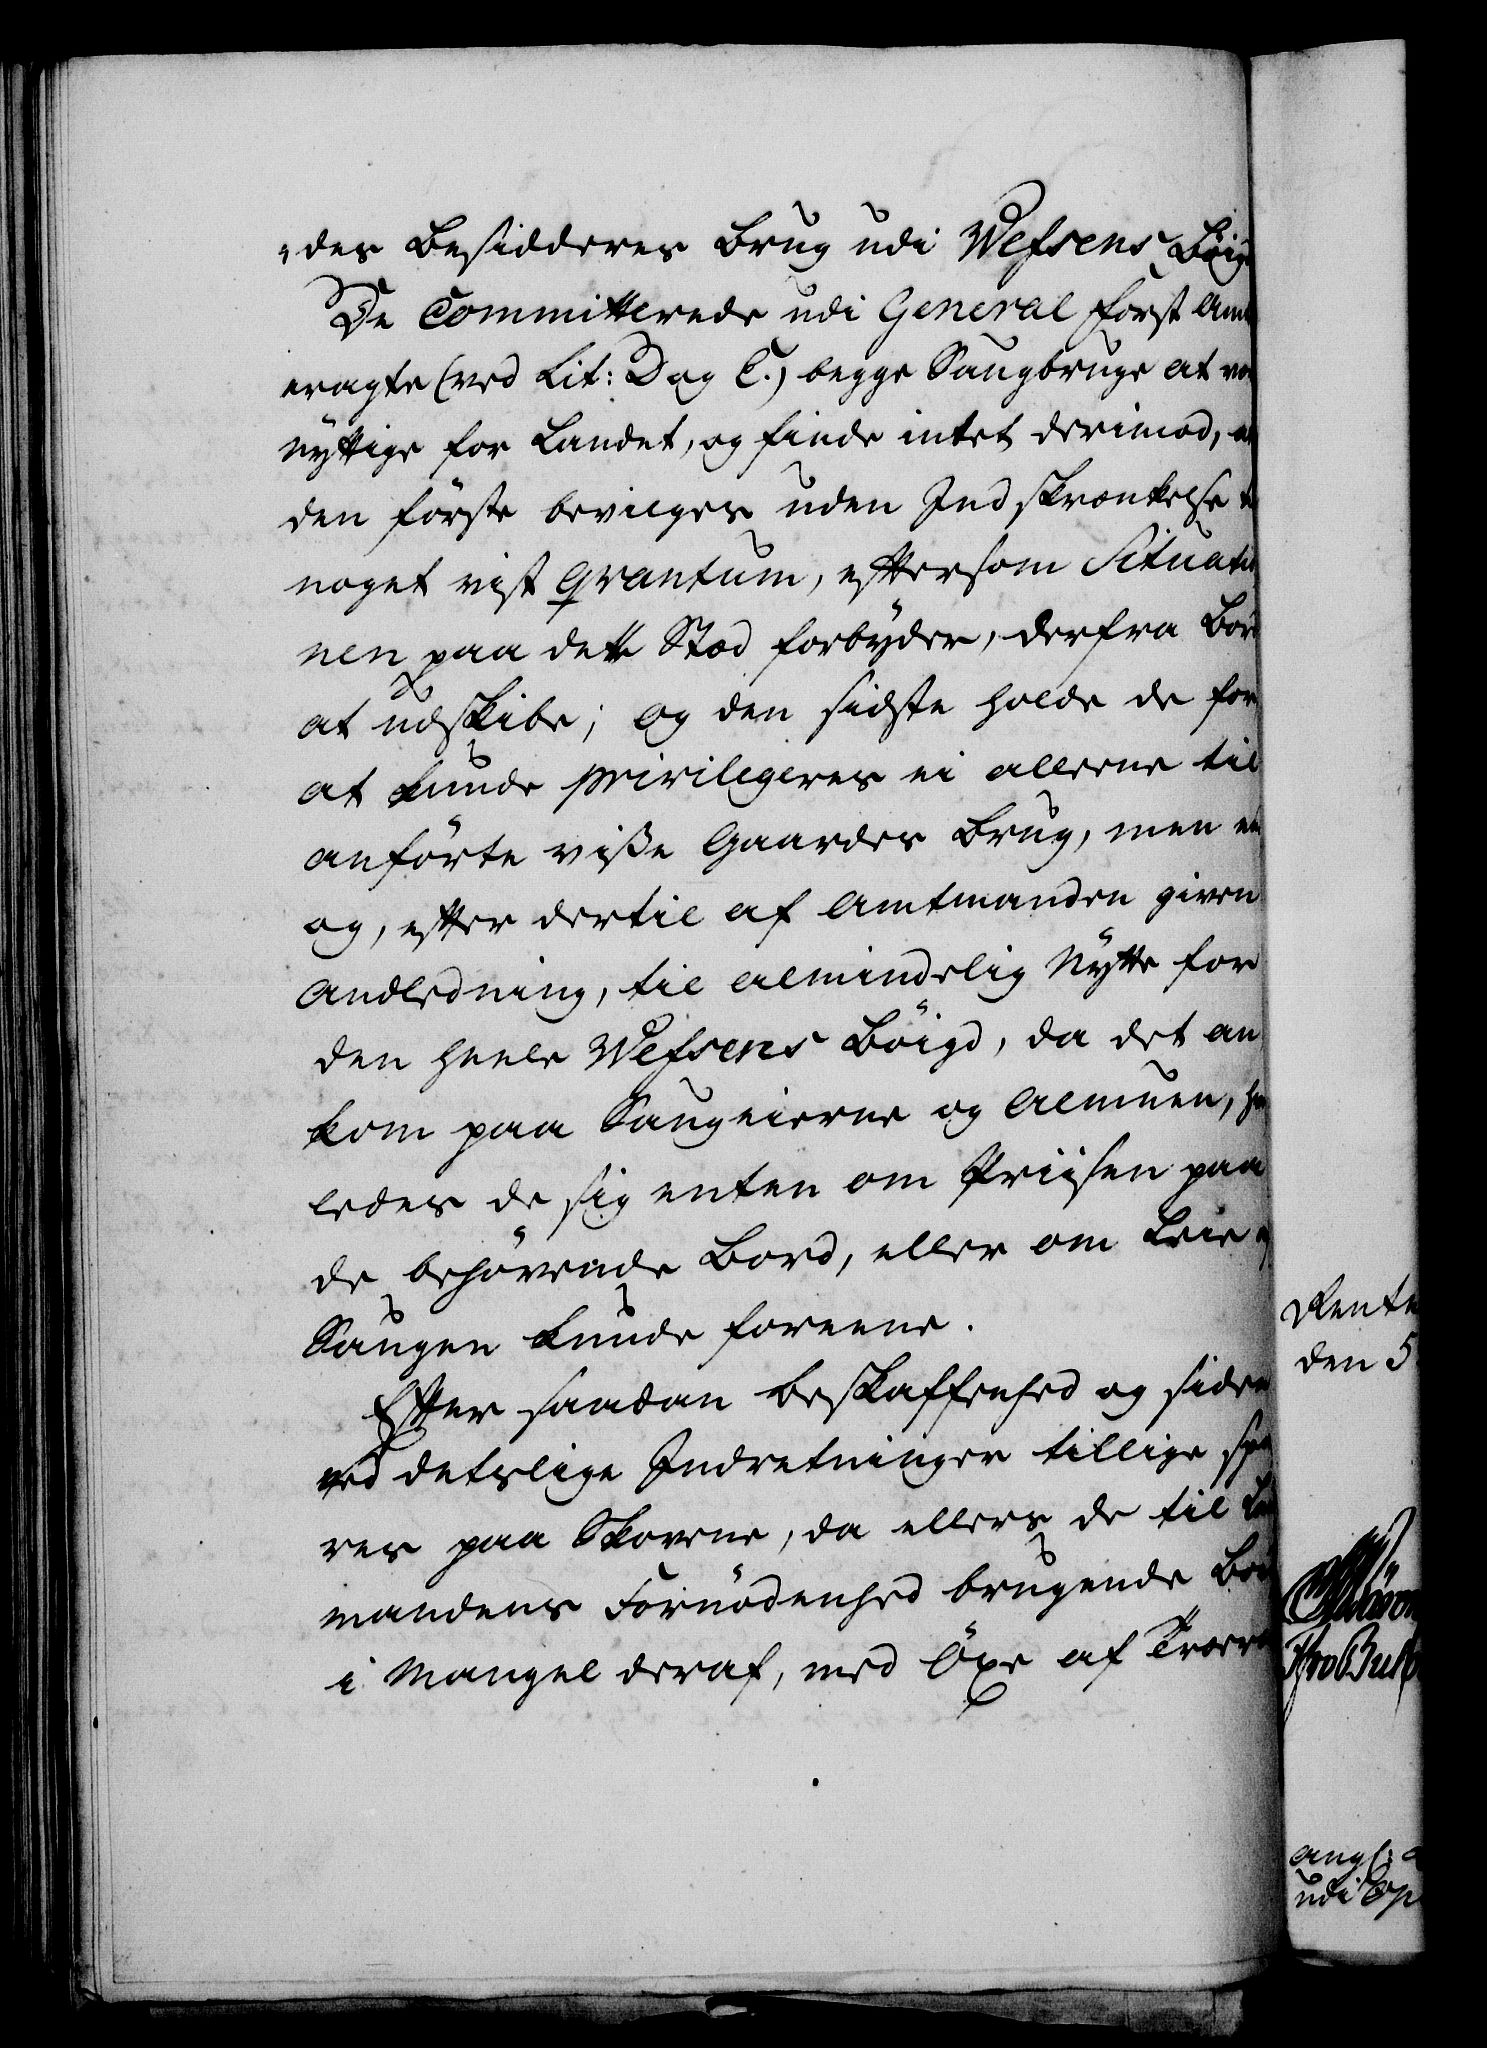 des Besidderes Brug udi Wefsens Böig
De Committerede udi General Forst Amt
eragte (ved Lit: D og E.) begge Saugbruge at væ
nyttige for Landet, og finde intet derimod, at
den förste bevilges uden Indskrænkelse t
noget vist qvantum, eftersom Situatio
nen paa dette Stæd forbyder, derfra Bord
at udskibe; og den sidste holde de for
at kunde privilegeres ei alleene til
anförte visse Gaardes Brug, men en
og, efter dertil af Amtmanden given
Andledning, til almindelig Nytte for
den heele Wefsens Böigd, da det an
kom paa Saugeierne og Almuen, hvor
ledes de sig enten om Priisen paa
de behövende Bord, eller om Leie af
Saugen kunde foreene.
Efter saadan Beskaffenhed og siden
ved deslige Indretninger tillige spa
res paa Skovene, da ellers de til
mandens Fornödenhed brugende Bord
i Mangel deraf, med Öxe af Træer
Rente
den 5
udi